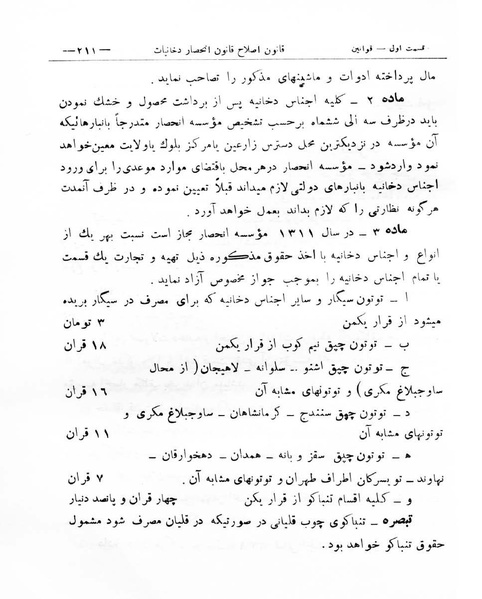 قسمت اول – قوانین قانون اصلاح قانون انحصار دخانیات —۲۱۱—
مال پرداخته ادوات و ماشینهای مذکور را تصاحب نماید.
ماده ۲ – کلیه اجناس دخانیه پس از برداشت محصول و خشك نمودن
باید درظرف سه الی ششماه برحسب تشخیص مؤسسه انحصار متدرجاً بانبارهائیکه
آن مؤسسه در نزدیکترین محل دسترس زارعین یامرکز بلوك یاولایت معین‌خواهد
نمود واردشود – مؤسسه انحصار درهر محل باقتضای موارد موعدی را برای ورود
اجناس دخانیه بانبارهای دولتی لازم میداند قبلاً تعیین نموده و در ظرف آنمدت
هرگونه نظارتی را که لازم بداند بعمل خواهد آورد.
ماده ۳ – در سال ۱۳۱۱ مؤسسه انحصار مجاز است نسبت بهر یك از
انواع و اجناس دخانیه با اخذ حقوق مذکوره ذیل تهیه و تجارت یك قسمت
یا تمام اجناس دخانیه را بموجب جواز مخصوص آزاد نماید.
ا – توتون سیگار و سایر اجناس دخانیه که برای مصرف در سیگار بریده
میشود از قرار یکمن ۳ تومان
ب – توتون چپق نیم کوب از قرار یکمن ۱۸ قران
ج – توتون چپق اشنو – سلوانه – لاهیجان (از محال
ساوجبلاغ مکری) و توتونهای مشابه آن ۱۶ قران
د – توتون چپق سنندج – کرمانشاهان – ساوجبلاغ مکری و
توتونهای مشابه آن ۱۱ قران
ه – توتون چپق سقز و بانه – همدان – دهخوارقان –
نهاوند – تویسرکان اطراف طهران و توتونهای مشابه آن. ۷ قران
و – کلیه اقسام تنباکو از قرار یکن چهار قران و پانصد دنیار
تبصره – تنباکوی چوب قلیانی در صورتیکه در قلیان مصرف شود مشمول
حقوق تنباکو خواهد بود.